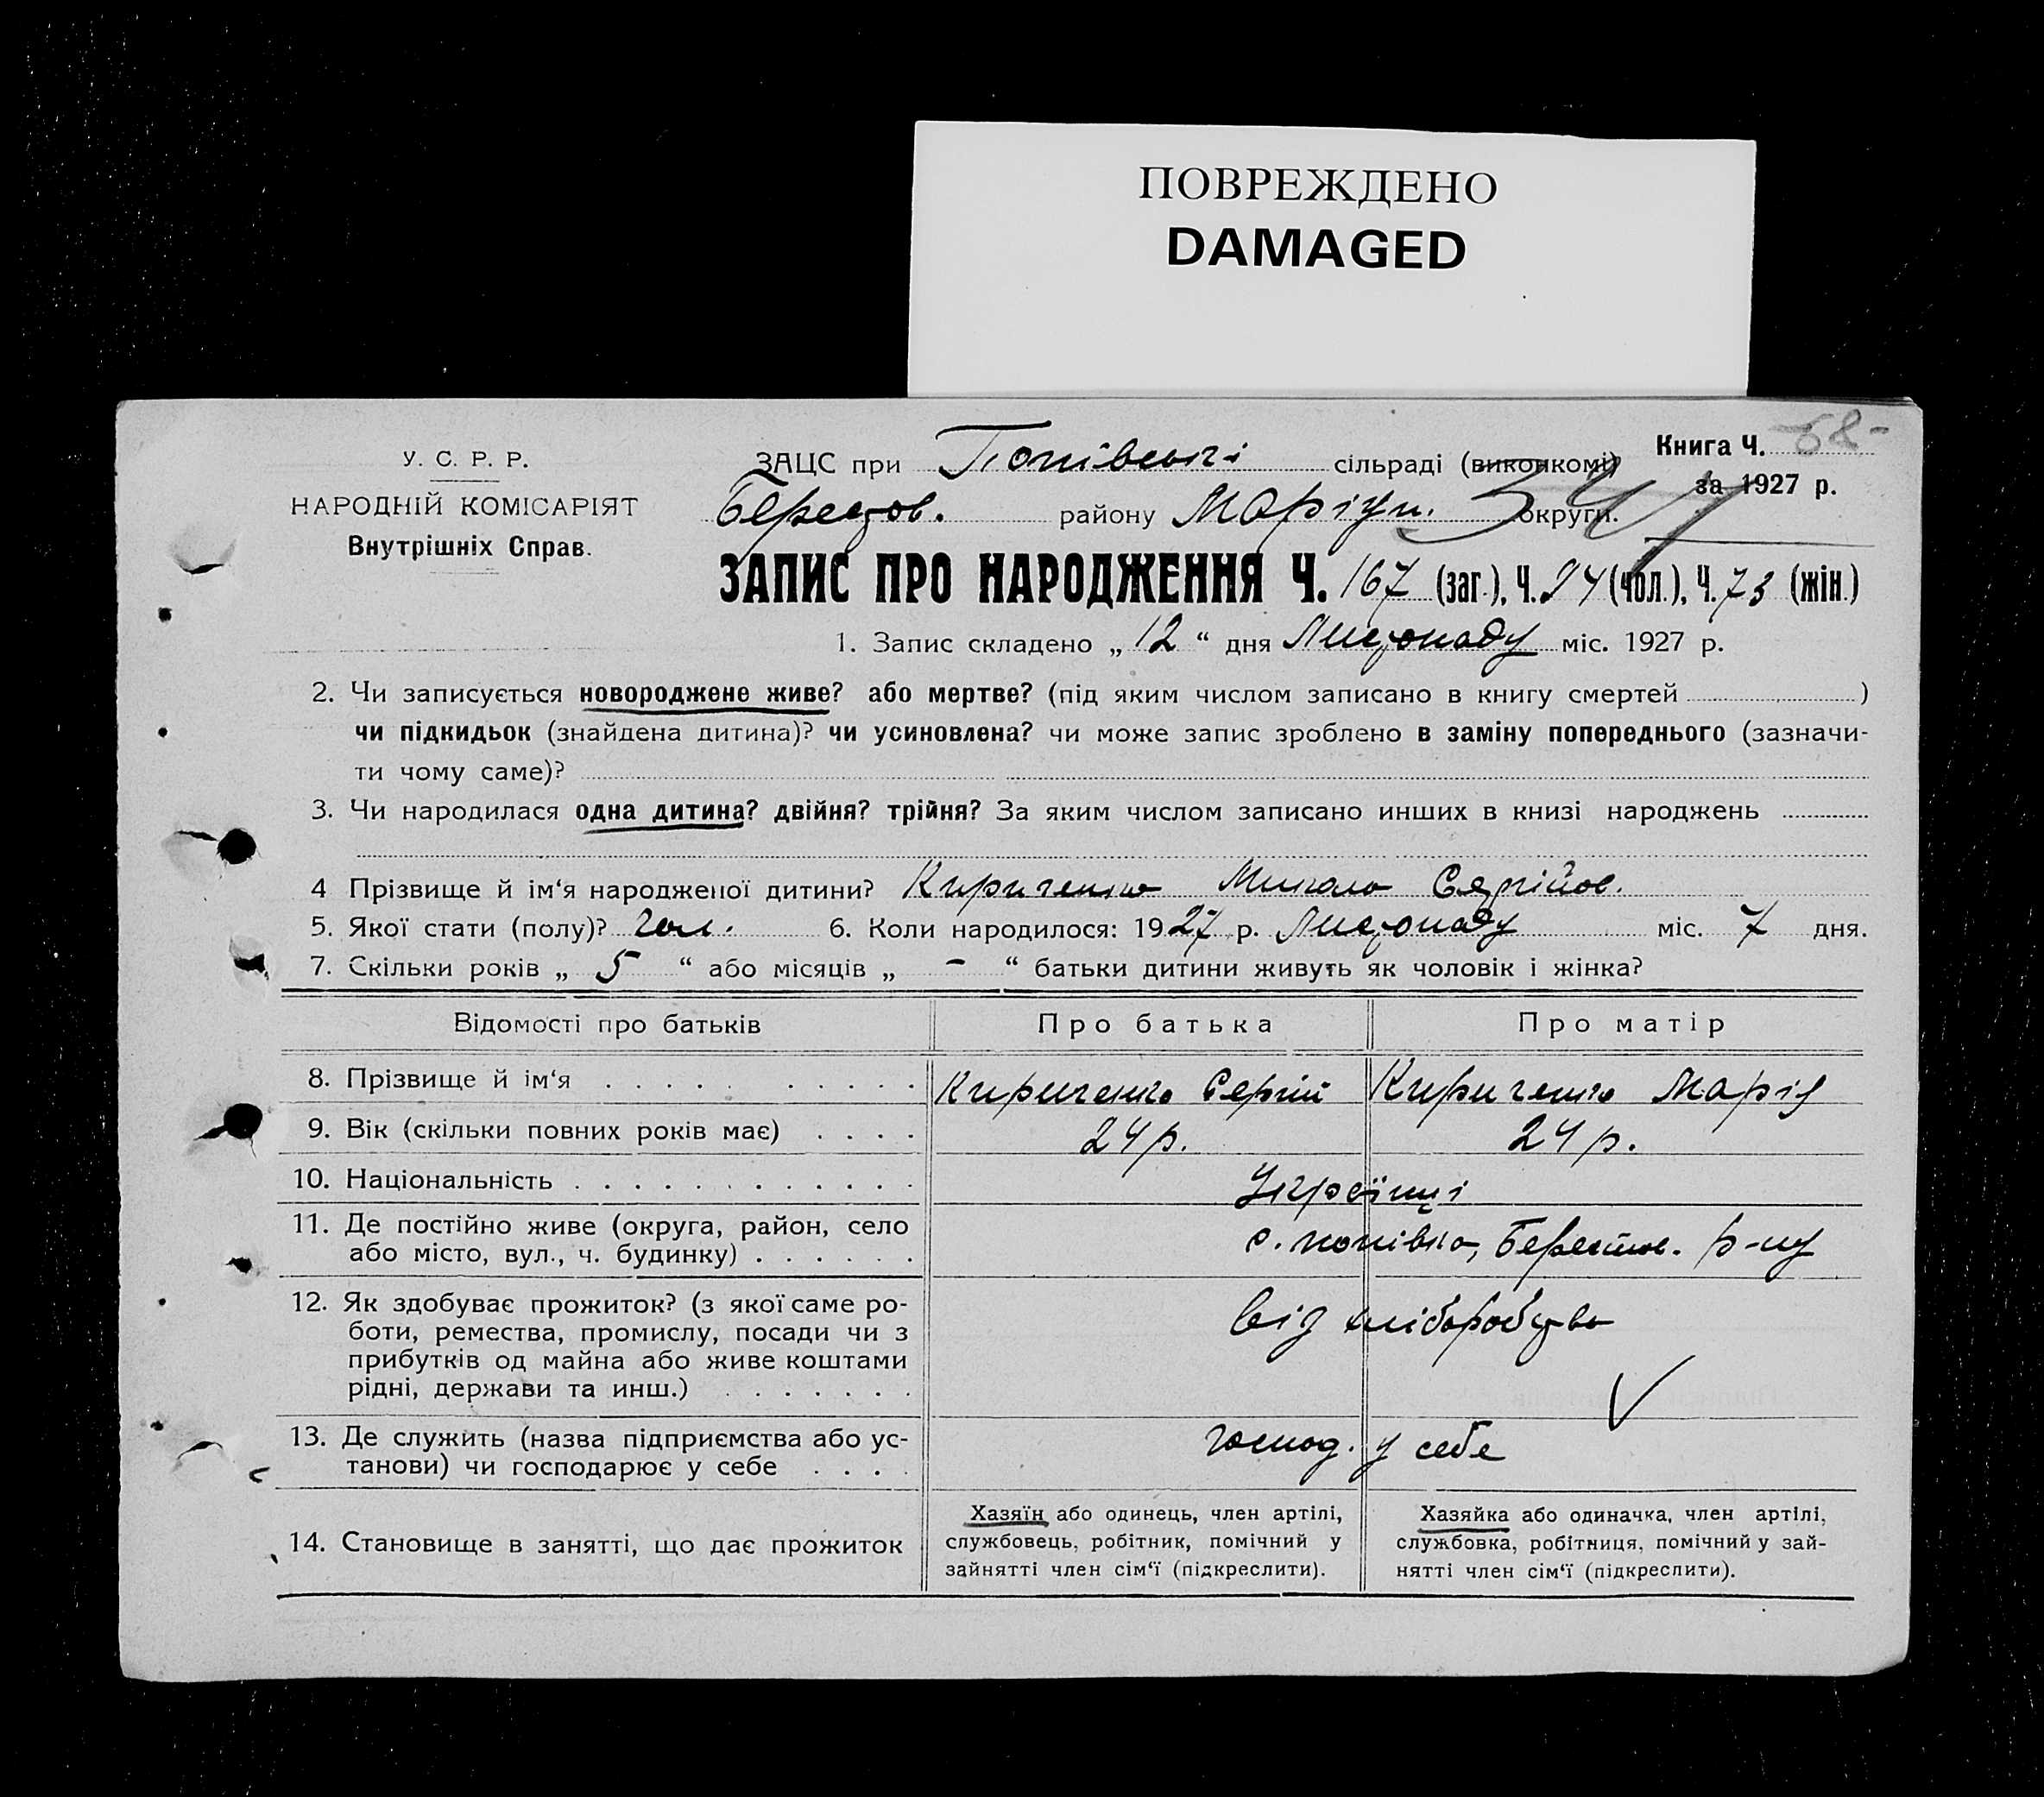 ПОВРЕЖДЕНО
DAMAGED
У. С. Р. Р.
НАРОДНІЙ КОМІСАРІЯТ
Внутрішніх Справ.
Книга Ч. 58-
за 1927 р.
ЗАЦС при Попівській сільраді (виконкомі)
Берестов. району Маріуп. округи.
ЗАПИС ПРО НАРОДЖЕННЯ Ч. 167 (заг.), Ч. 94 (чол.), Ч. 73 (жін.)
1. Запис складено „ 12 “ дня Листопаду міс. 1927 р.
2. Чи записується новороджене живе? або мертве? (під яким числом записано в книгу смертей )
чи підкидьок (знайдена дитина)? чи усиновлена? чи може запис зроблено в заміну попереднього (зазначи-
ти чому саме)?
3. Чи народилася одна дитина? двійня? трійня? За яким числом записано инших в книзі народжень
4 Прізвище й ім‘я народженої дитини? Кириченко Микола Сергійов.
5. Якої стати (полу)? чол. 6. Коли народилося: 1927 р. Листопаду міс. 7 дня.
7. Скільки років „ 5 “ або місяців „ - “ батьки дитини живуть як чоловік і жінка?
Відомості про батьків Про батька Про матір
8. Прізвище й ім‘я Кириченко Сергій Кириченко Марія
9. Вік (скільки повних років має) 24 р. 24 р.
10. Національність Українці
11. Де постійно живе (округа, район, село
або місто, вул., ч. будинку) с. попівка, Берестов. р-ну
12. Як здобуває прожиток? (з якої саме ро-
боти, ремества, промислу, посади чи з
прибутків од майна або живе коштами
рідні, держави та инш.)
від хліборобства
13. Де служить (назва підприємства або ус-
танови) чи господарює у себе
господ. у себе
14. Становище в занятті, що дає прожиток
Хазяїн або одинець, член артілі,
службовець, робітник, помічний у
зайнятті член сім‘ї (підкреслити).
Хазяйка або одиначка, член артілі,
службовка, робітниця, помічний у зай-
нятті член сім‘ї (підкреслити).